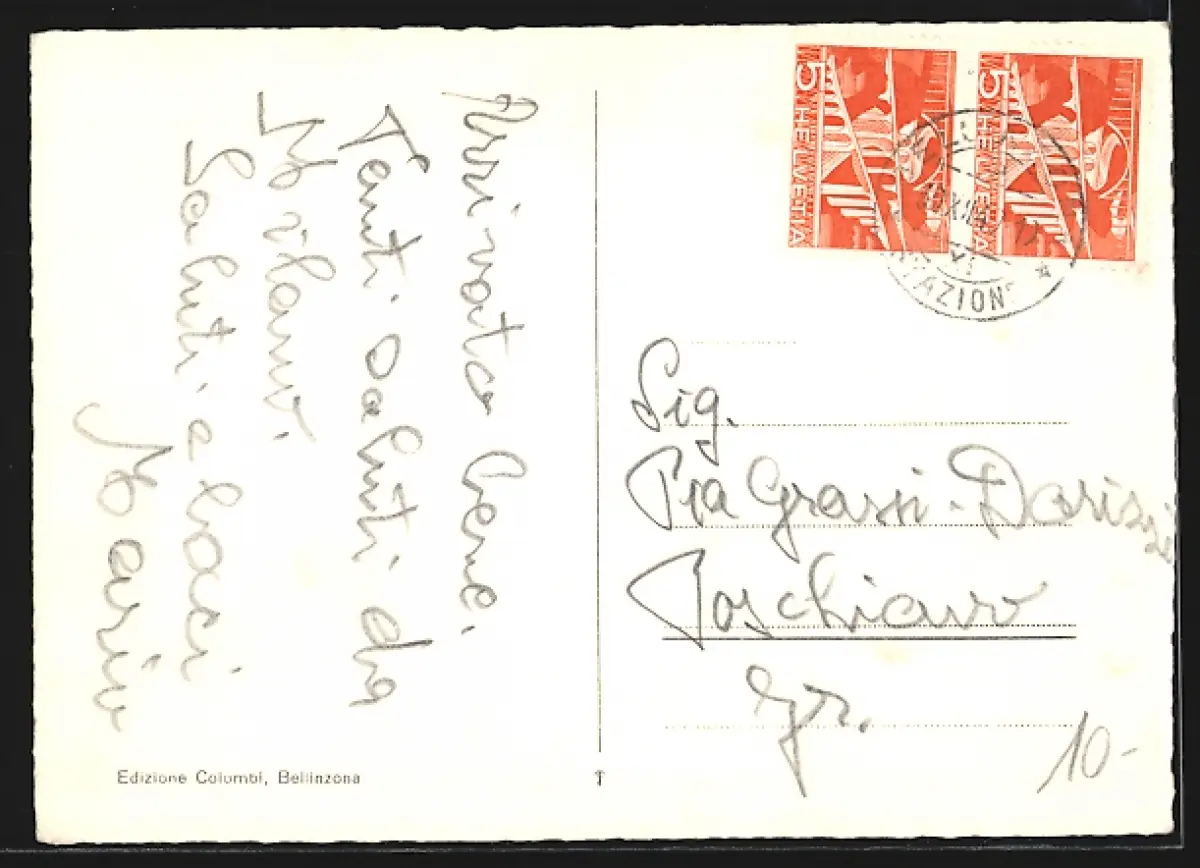 Arrivato bene.
Tanti saluti da
Milano.
Saluti e baci
Mario
5 HELVETIA
5 HELVETIA
STAZIONE
Sig.
Pia Grassi-Dorizzi
Poschiavo
Gr.
10-
Edizione Colombi, Bellinzona